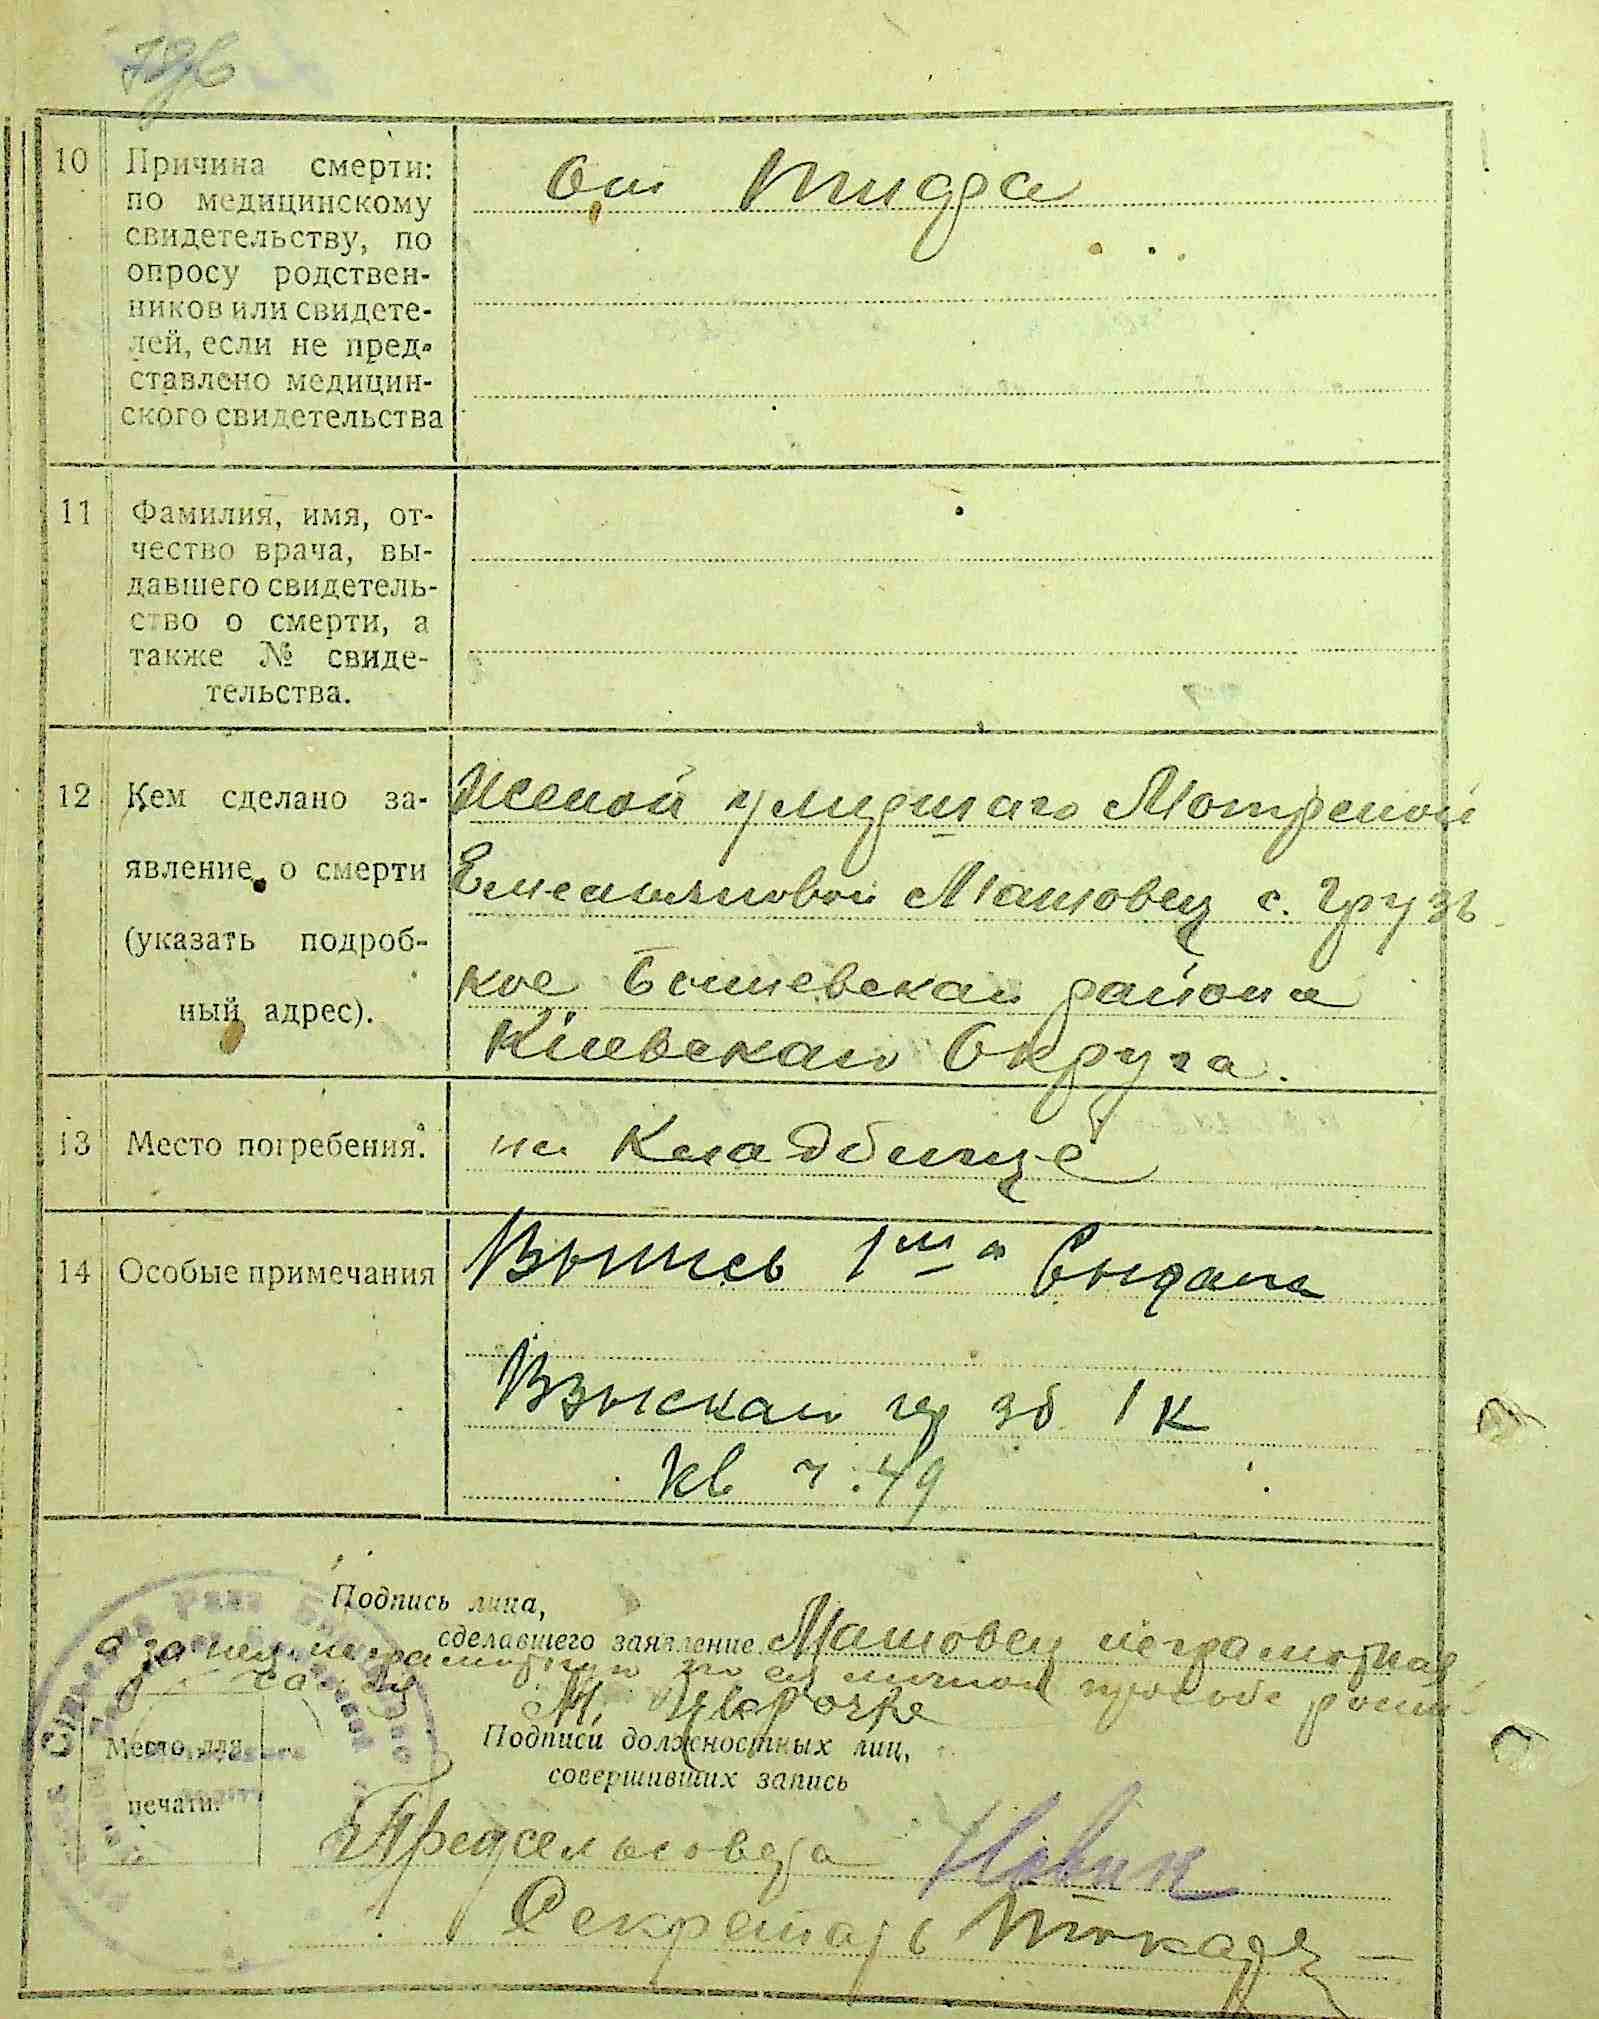 10 Причина смерти:
по медицинскому
свидетельству, по
опросу родствен-
ников или свидете-
лей, если не пред-
ставлено медицин-
ского свидетельства
От тифа
11 Фамилия, имя, от-
чество врача, вы-
давшего свидетель-
ство о смерти, а
также № свиде-
тельства.
12 Кем сделано за-
явление о смерти
(указать подроб-
ный адрес).
Женой умершаго Мотреной
Емельяновой Матовец с. Грузь
кое Бышевскаго района
Кіевскаго Округа.
13 Место погребения.
на Кладбище
14 Особые примечания
Выпись 1ша Выдана
Взыскано 1 к
кв ч. 49
Подпись лица,
сделавшего заявление Матовец неграмотная
а за нея неграмотную по ея личной просьбе
Место для
печати.
Подписи должностных лиц,
совершивших запись
Предсельсовета Новик
Секретарь Токарь